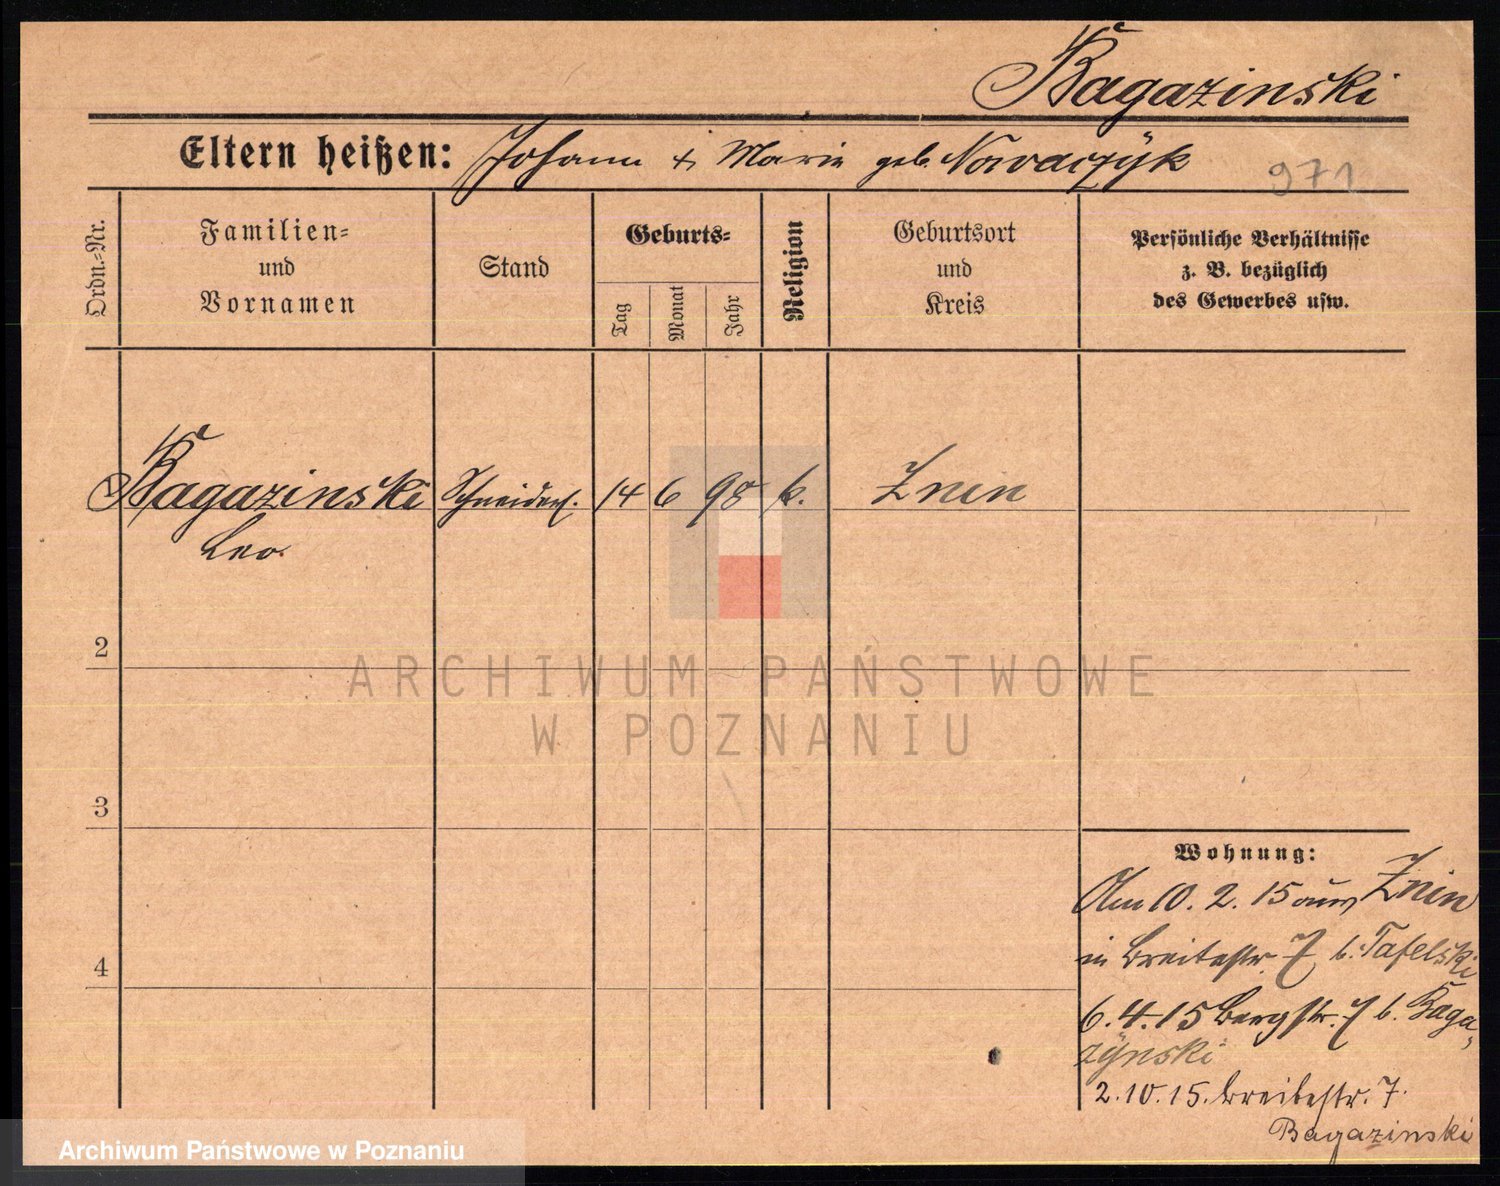 Bagazinski
Eltern heißen: Johann + Marie geb. Nowaczÿk
971
Ordn.-Nr.
Familien-
und
Vornamen
Stand
Geburts-
Tag
Monat
Jahr
Religion
Geburtsort
und
Kreis
Persönliche Verhältnisse
z. B. bezüglich
des Gewerbes usw.
Bagazinski Schneiderl. 14 6 98 k. Znin
Leo.
2
ARCHIWUM PAŃSTWOWE
W POZNANIU
3
Wohnung:
Am 10. 2. 15 aus Znin
in Breitestr. 7 b. Tafelski
4
6. 4. 15 Bergstr. 7 b. Baga-
zÿnski
2. 10. 15. Breitestr. 7.
Bagazinski
Archiwum Państwowe w Poznaniu